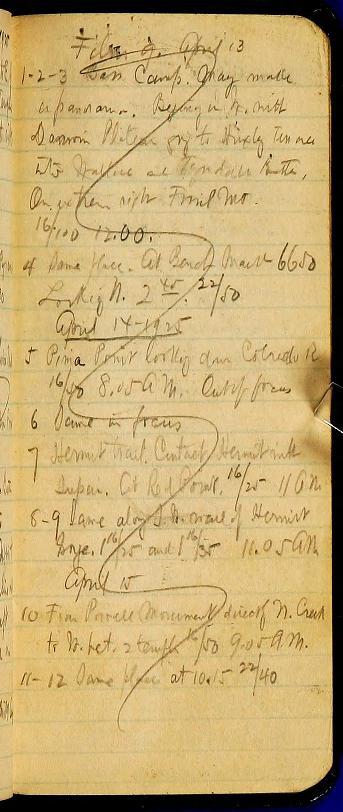 Film 9. April 13
1-2-3 Bass Camp. May make
a panorama. Begin in N. with
Darwin Plateau going to Huxley Terrace
to Wallace and Tyndall Butte,
On extreme right Fossil Mt.
16/100 12.00.
4 Same place. At Bench Mark 6650
Looking N. 2 45. 22/50
April 14-1925
5 Pima Point looking down Colorado R
16/40 8.05 A.M. Out of focus
6 Same in focus
7 Hermit trail. Contact Hermit with
Supai. At Red Point. 16/25 11 AM
8-9 Same along N. wall of Hermit
Gorge. 1 16/25 and 1 16/35 11.05 AM
April 15
10 From Powell Monument direct N. Creek
to N. bet. 2 temples 16/50 9.05 A.M.
11-12 Same place at 10.15 22/40